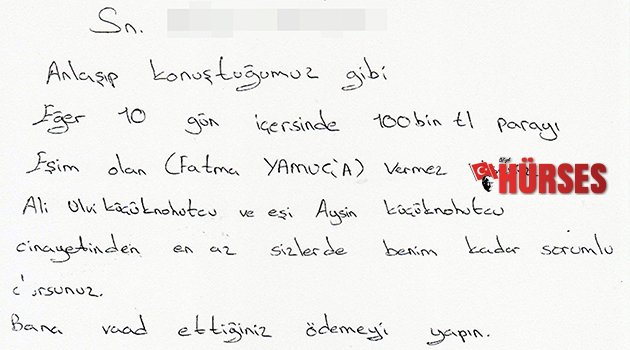 Sn.
Anlaşıp konuştuğumuz gibi
Eğer 10 gün içersinde 100bin tl parayı
Eşim olan (Fatma YAMUÇ'A) vermez
HÜRSES
Ali Ulvi Küçüknohutcu ve eşi Aysin Küçüknohutcu
cinayetinden en az sizlerde benim kadar sorumlu
olursunuz.
Bana vaad ettiğiniz ödemeyi yapın.